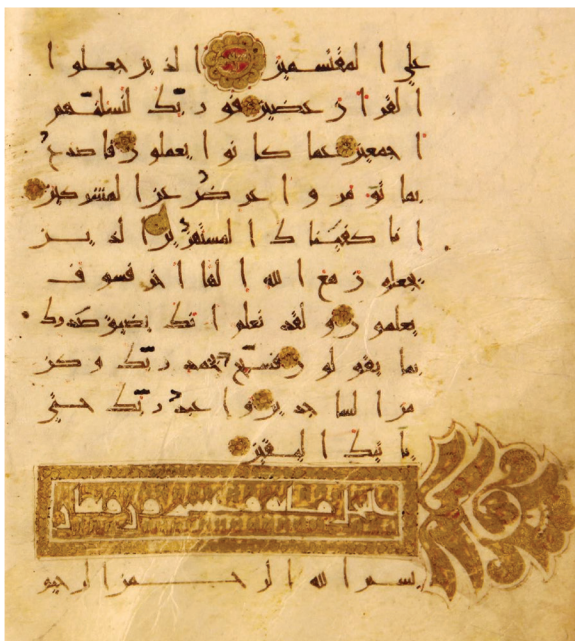 على المقتسمين الذين جعلوا
القران عضين فوربك لنسلنهم
اجمعين عما كانوا يعملون فاصدع
بما تومر واعرض عن المشركين
انا كفيناك المستهزين الذين
يجعلون مع الله الها اخر فسوف
يعلمون ولقد نعلم انك يضيق صدرك
بما يقولون فسبح بحمد ربك وكن
من الساجدين واعبد ربك حتى
ياتيك اليقين
النحل مائة وعشرون وثمان
بسم الله الرحمن الرحيم